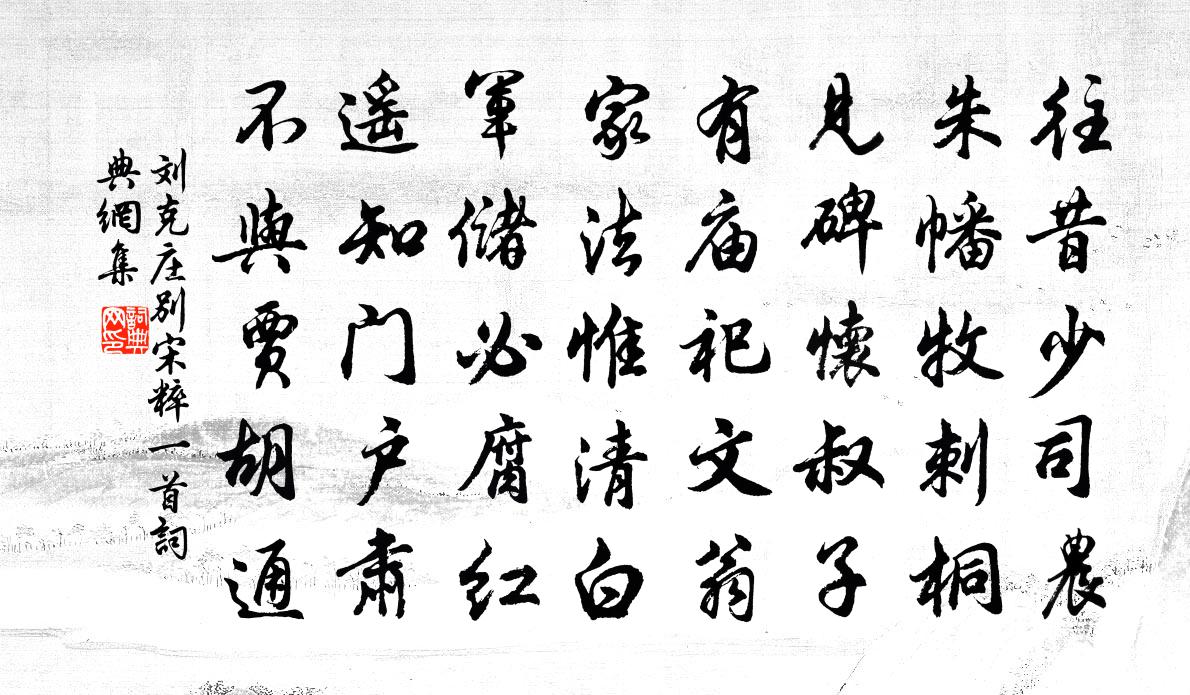 往昔少司農
朱幡牧刺桐
見碑懷叔子
有庙祀文翁
家法惟清白
軍儲必腐红
遥知门户肃
不與賈胡通
刘克庄别宋粹一首詞
典網集
詞典
网印